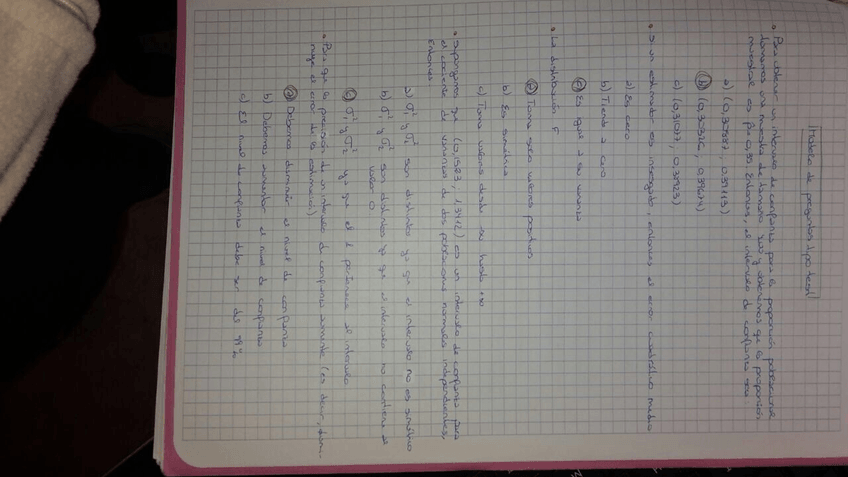 Modelo de preguntas tipo test
• Para obtener un intervalo de confianza para la proporción poblacional
tomamos una muestra de tamaño y obtenemos que la proporción
muestral es Entonces, el intervalo de confianza será:
a)
b)
c)
• Si un estimador es insesgado, entonces el error cuadrático medio
a) Es cero
b) Tiende a cero
c) Es igual a su varianza
• La distribución F
a) Toma solo valores positivos
b) Es simétrica
c) Toma valores desde -∞ hasta +∞
• Supongamos que es un intervalo de confianza para
el cociente de varianzas de dos poblaciones normales independientes,
Entonces
a) σ₁² y σ₂² son distintas ya que el intervalo no es simétrico
b) σ₁² y σ₂² son distintas ya que el intervalo no contiene el
valor 0
c) σ₁² y σ₂² ya que el 1 pertenece al intervalo
• Para que la precisión de un intervalo de confianza aumente (es decir, dismi-
nuye el error de la estimación)
a) Debemos disminuir el nivel de confianza
b) Debemos aumentar el nivel de confianza
c) El nivel de confianza debe ser del 99%